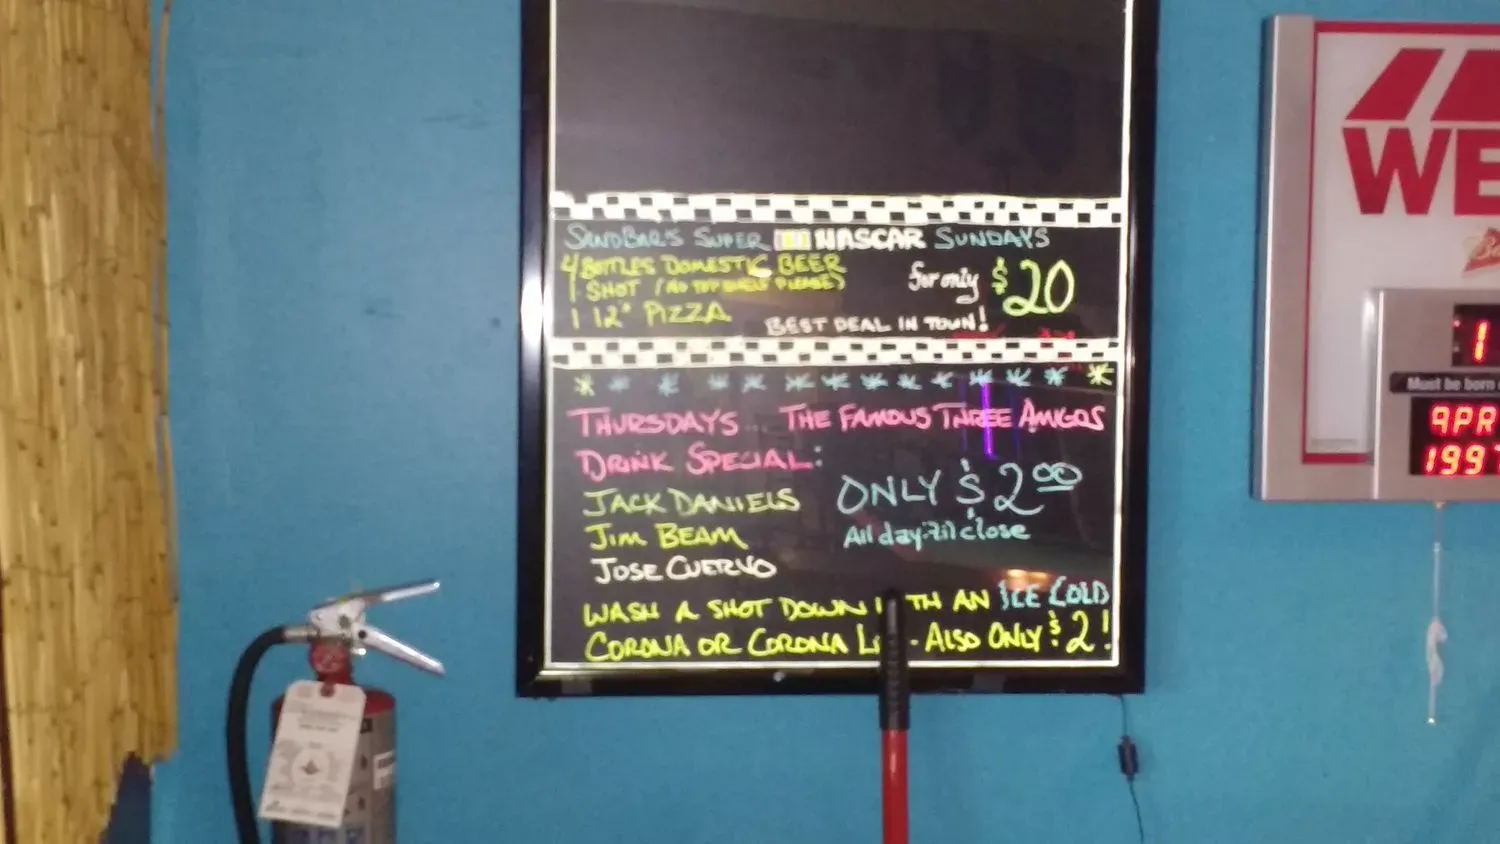 SANDBAR'S SUPER NASCAR SUNDAYS
4 BOTTLES DOMESTIC BEER
1 SHOT (NO TOP SHELF PLEASE)
1 12" PIZZA
for only $20
BEST DEAL IN TOWN!
THURSDAYS... THE FAMOUS THREE AMIGOS
DRINK SPECIAL:
JACK DANIELS
JIM BEAM
JOSE CUERVO
ONLY $2.00
All day 'til close
WASH A SHOT DOWN WITH AN ICE COLD
CORONA OR CORONA - ALSO ONLY $2!
WE
1
Must be born
APR
199